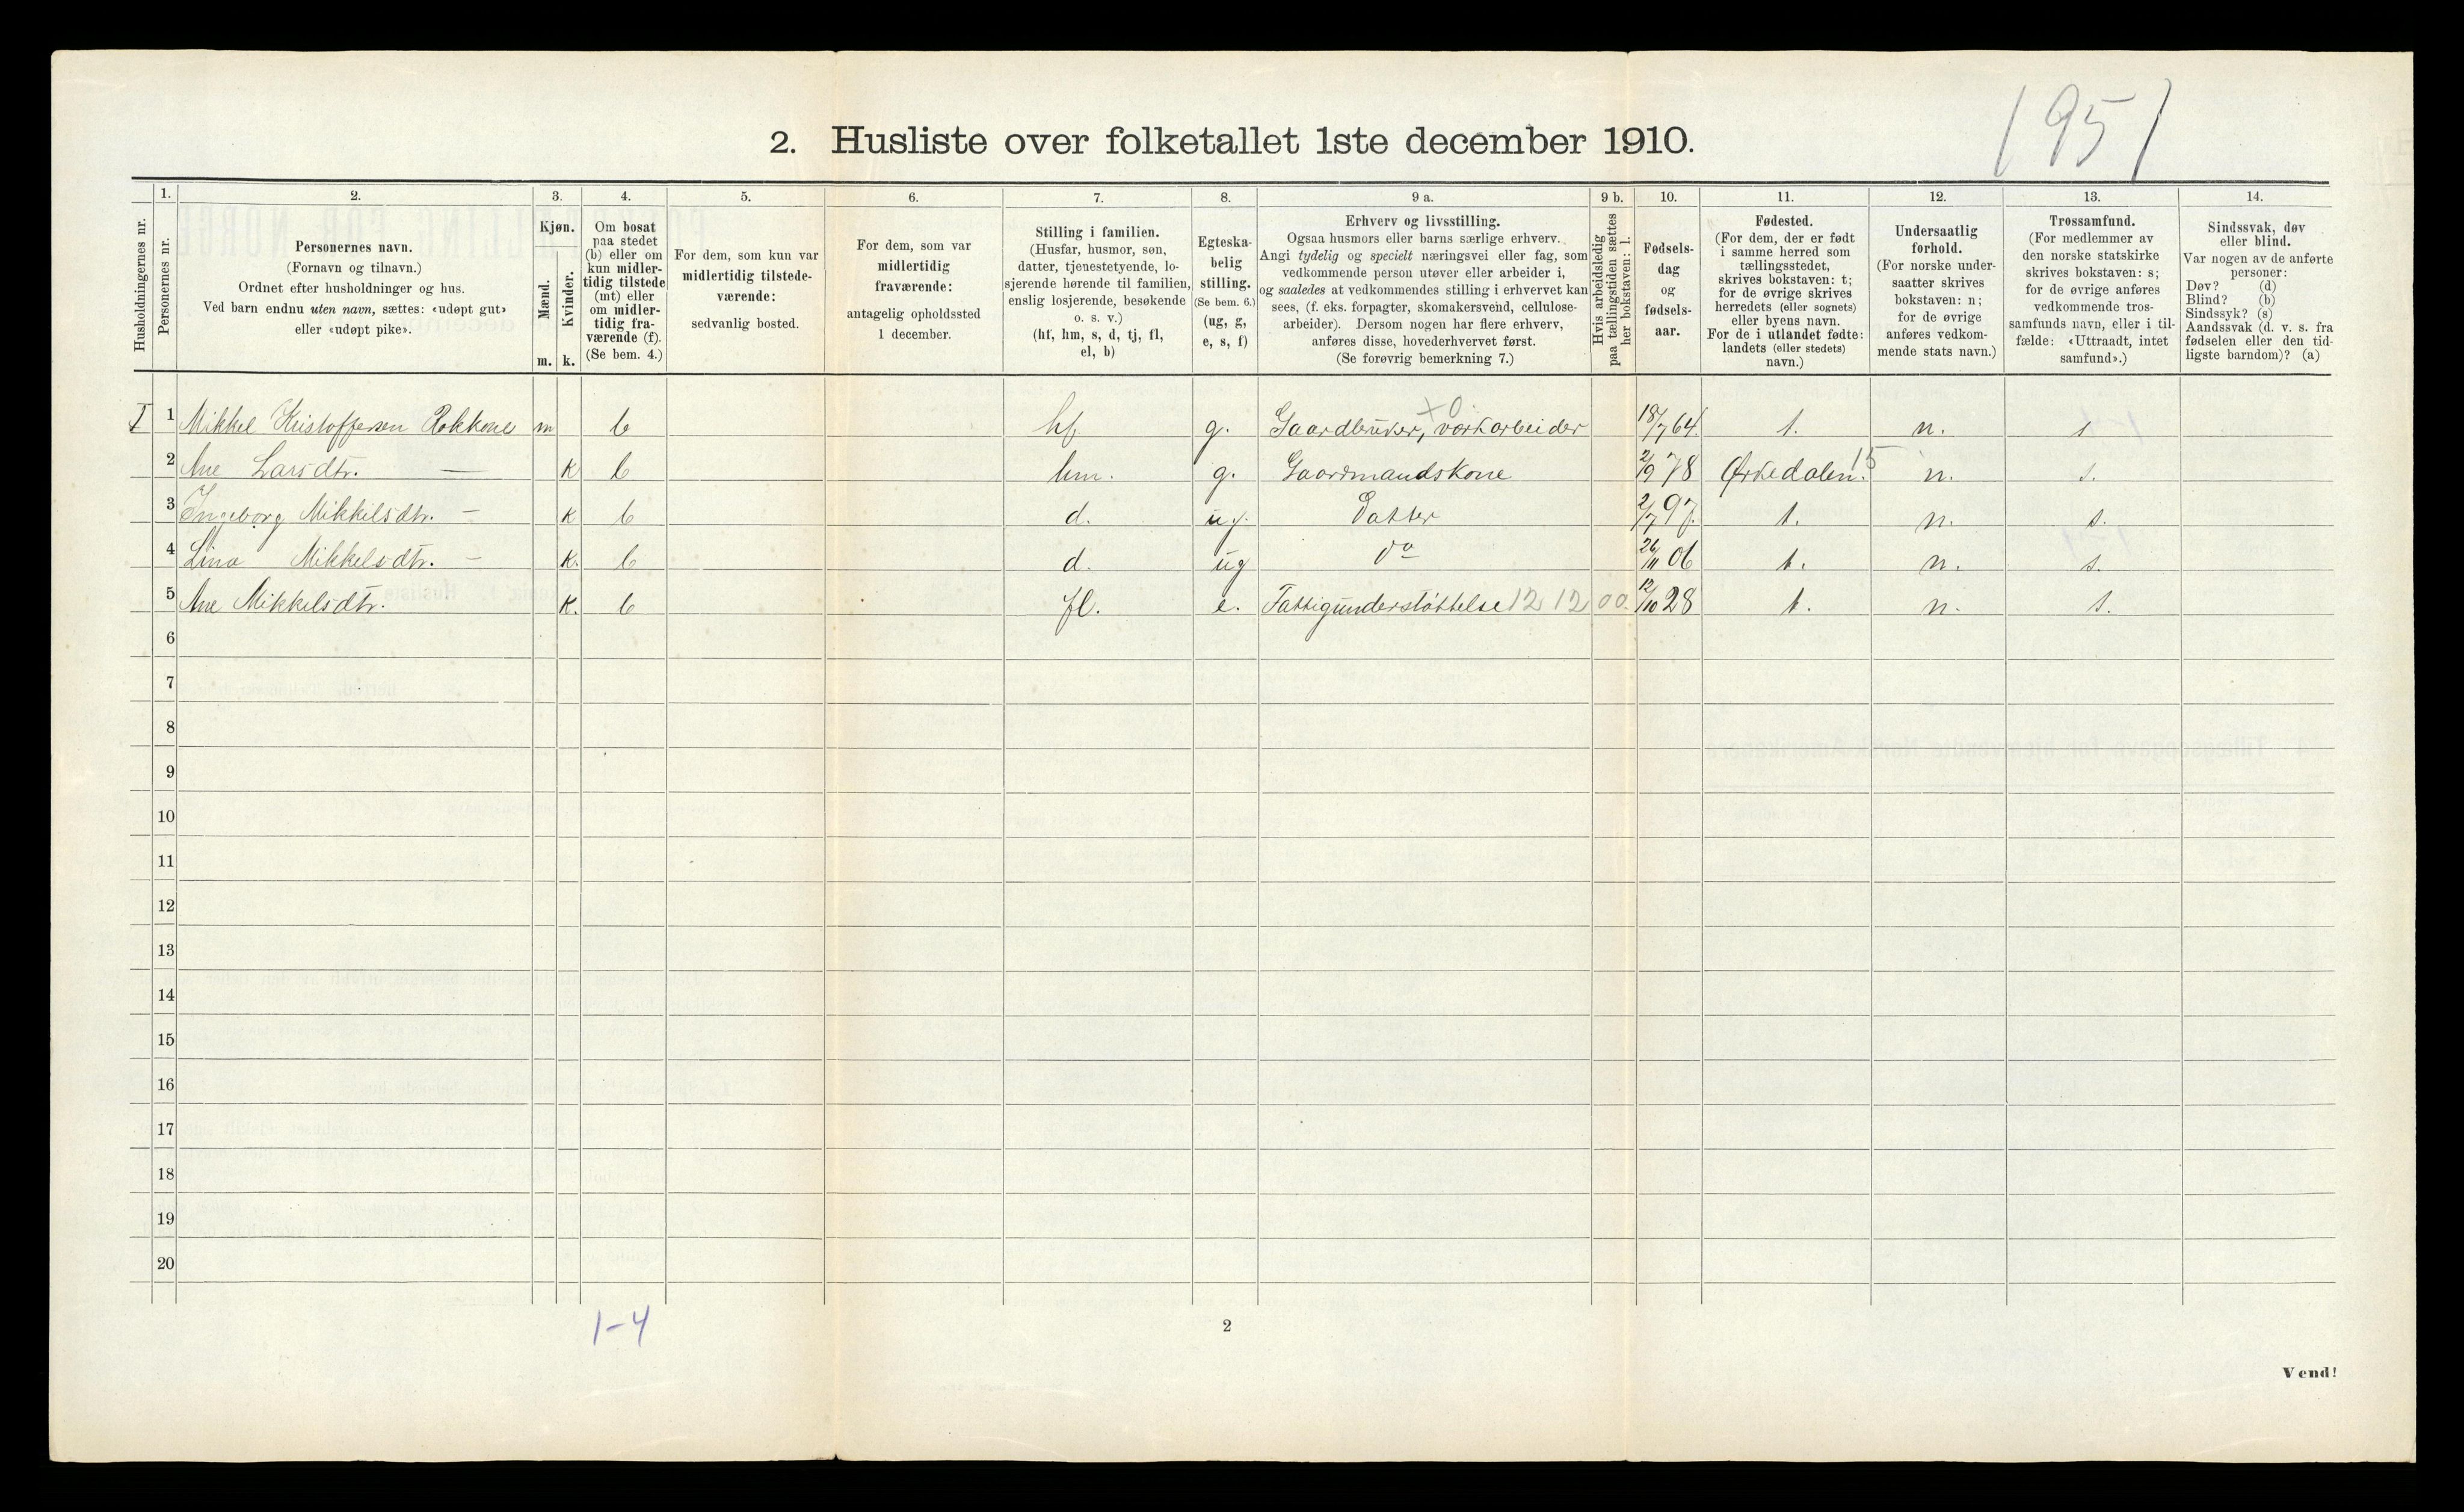 195
2. Husliste over folketallet 1ste december 1910.
Husholdningernes nr.
1.
Personernes nr.
2.
Personernes navn.
(Fornavn og tilnavn.)
Ordnet efter husholdninger og hus.
Ved barn endnu uten navn, sættes: «udøpt gut»
eller «udøpt pike».
3.
Kjøn.
Mænd.
Kvinder.
m. k.
4.
Om bosat
paa stedet
(b) eller om
kun midler-
tidig tilstede
(mt) eller
om midler-
tidig fra-
værende (f).
(Se bem. 4.)
5.
For dem, som kun var
midlertidig tilstede-
værende:
sedvanlig bosted.
6.
For dem, som var
midlertidig
fraværende:
antagelig opholdssted
1 december.
7.
Stilling i familien.
(Husfar, husmor, søn,
datter, tjenestetyende, lo-
sjerende hørende til familien,
enslig losjerende, besøkende
o. s. v.)
(hf, hm, s, d, tj, fl,
el, b)
8.
Egteska-
belig
stilling.
(Se bem. 6.)
(ug, g,
e, s, f)
9 a.
Erhverv og livsstilling.
Ogsaa husmors eller barns særlige erhverv.
Angi tydelig og specielt næringsvei eller fag, som
vedkommende person utøver eller arbeider i,
og saaledes at vedkommendes stilling i erhvervet kan
sees, (f. eks. forpagter, skomakersvend, cellulose-
arbeider). Dersom nogen har flere erhverv,
anføres disse, hovederhvervet først.
(Se forøvrig bemerkning 7.)
9 b.
Hvis arbeidsledig
paa tællingstiden sættes
her bokstaven: l.
10.
Fødsels-
dag
og
fødsels-
aar.
11.
Fødested.
(For dem, der er født
i samme herred som
tællingsstedet,
skrives bokstaven: t;
for de øvrige skrives
herredets (eller sognets)
eller byens navn.
For de i utlandet fødte:
landets (eller stedets)
navn.)
12.
Undersaatlig
forhold.
(For norske under-
saatter skrives
bokstaven: n;
for de øvrige
anføres vedkom-
mende stats navn.)
13.
Trossamfund.
(For medlemmer av
den norske statskirke
skrives bokstaven: s;
for de øvrige anføres
vedkommende tros-
samfunds navn, eller i til-
fælde: «Uttraadt, intet
samfund».)
14.
Sindssvak, døv
eller blind.
Var nogen av de anførte
personer:
Døv? (d)
Blind? (b)
Sindssyk? (s)
Aandssvak (d. v. s. fra
fødselen eller den tid-
ligste barndom)? (a)
+0
I 1 Mikkel Kristoffersen Rokkone m b hf g. Gaardbruker, værkarbeider 18/7 64. t. n. s
2 Ane Larsdtr. — k b hm. g. Gaardmandskone 2/9 78 Ørkedalen. 15 n. s.
3 Ingeborg Mikkelsdtr. — k b d. ug. Datter 2/7 97. t. n. s.
4 Lina Mikkelsdtr. — k. b d. ug do 26/11 06 t. n. s.
5 Ane Mikkelsdtr. k. b fl. e. Fattigunderstøttelse 12 12 00. 12/10 28 t. n. s.
6
7
8
9
10
11
12
13
14
15
16
17
18
19
20
1-4
2
Vend!